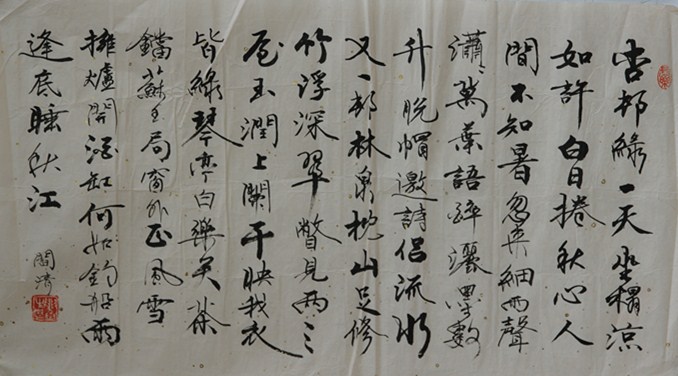 杏邨綠一天坐榻凉
如許白日捲秋心人
間不知暑忽矣細雨聲
瀟〻萬葉語醉灑墨數
升脫帽邀詩侶流水
又一邨林泉枕山足修
竹浮深翠瞥見兩三
屋玉潤上闌干映我衣
皆綠琴亭白樂天茶
鐺蘇玉局窗外正風雪
擁爐開酒缸何如釣船雨
逢底睡秋江